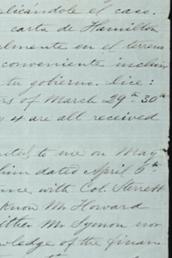 plicándole el caso.
carta de Hamilton
almente en el terreno
conveniente inclui
tu gobierno. lice:
rs of March 29th 30th
s 4 are all received
nited to me on May
him dated April 5th
ence with Col. Sterett
know Mr Howard
ither Mr Symon nor
wledge of the finan